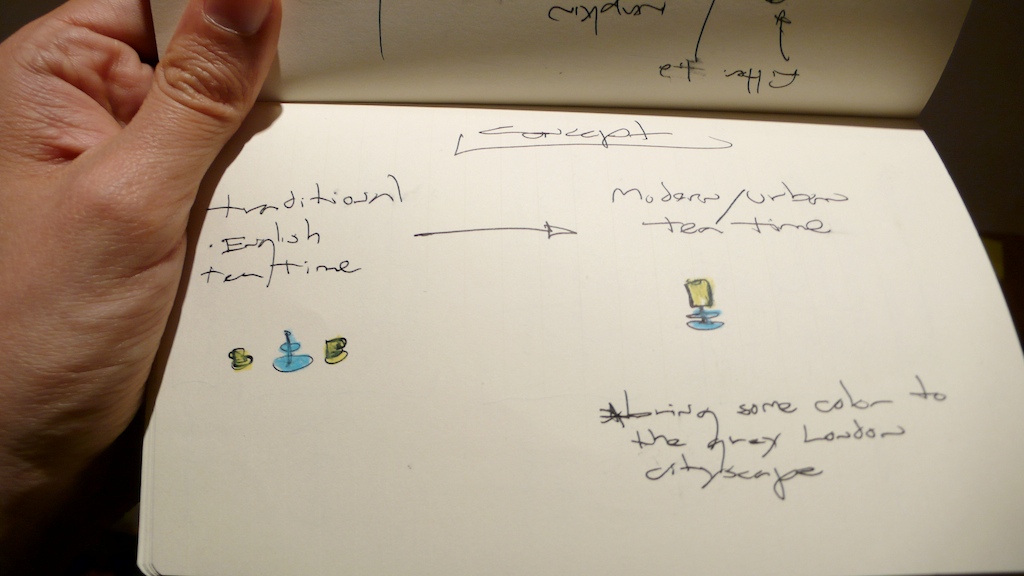 napkin
filter tea
concept
traditional
• English
tea/time
Modern/urban
tea time
bring some color to
the grey London
cityscape